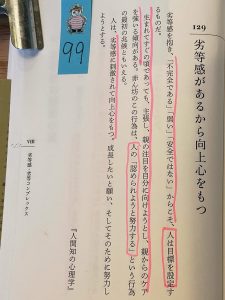 129
劣等感があるから向上心をもつ
劣等感を抱き、「不完全である」「弱い」「安全ではない」からこそ、人は目標を設定す
るものだ。
生まれてすぐの頃であっても、主張し、親の注目を自分に向けようとし、親からのケア
を強いる傾向がある。赤ん坊のこの行為は、人の「認められようと努力する」という行為
の最初の兆候ともいえる。
人は、劣等感に刺激されて向上心をもつ。成長したいと願い、そしてそのために努力し
ようとする。
『人間知の心理学』
VIII
劣等感・劣等コンプレックス
99